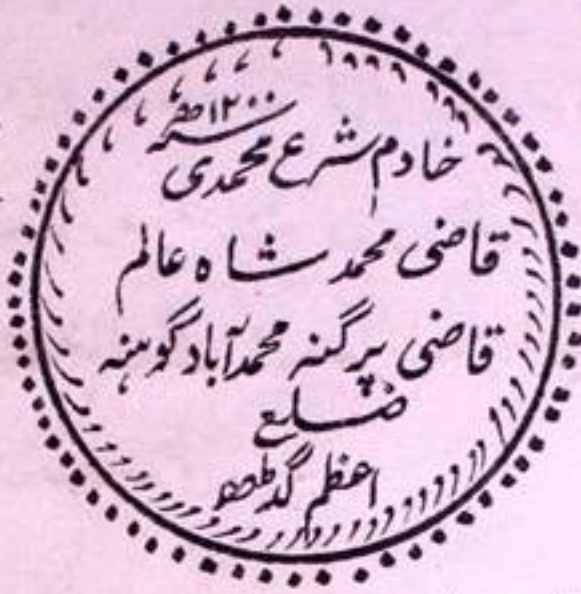 سنہ ۱۲۰۰ھ
خادم شرع محمدی
قاضی محمد شاہ عالم
قاضی پرگنہ محمدآباد گوہنہ
ضلع
اعظم گڑھ